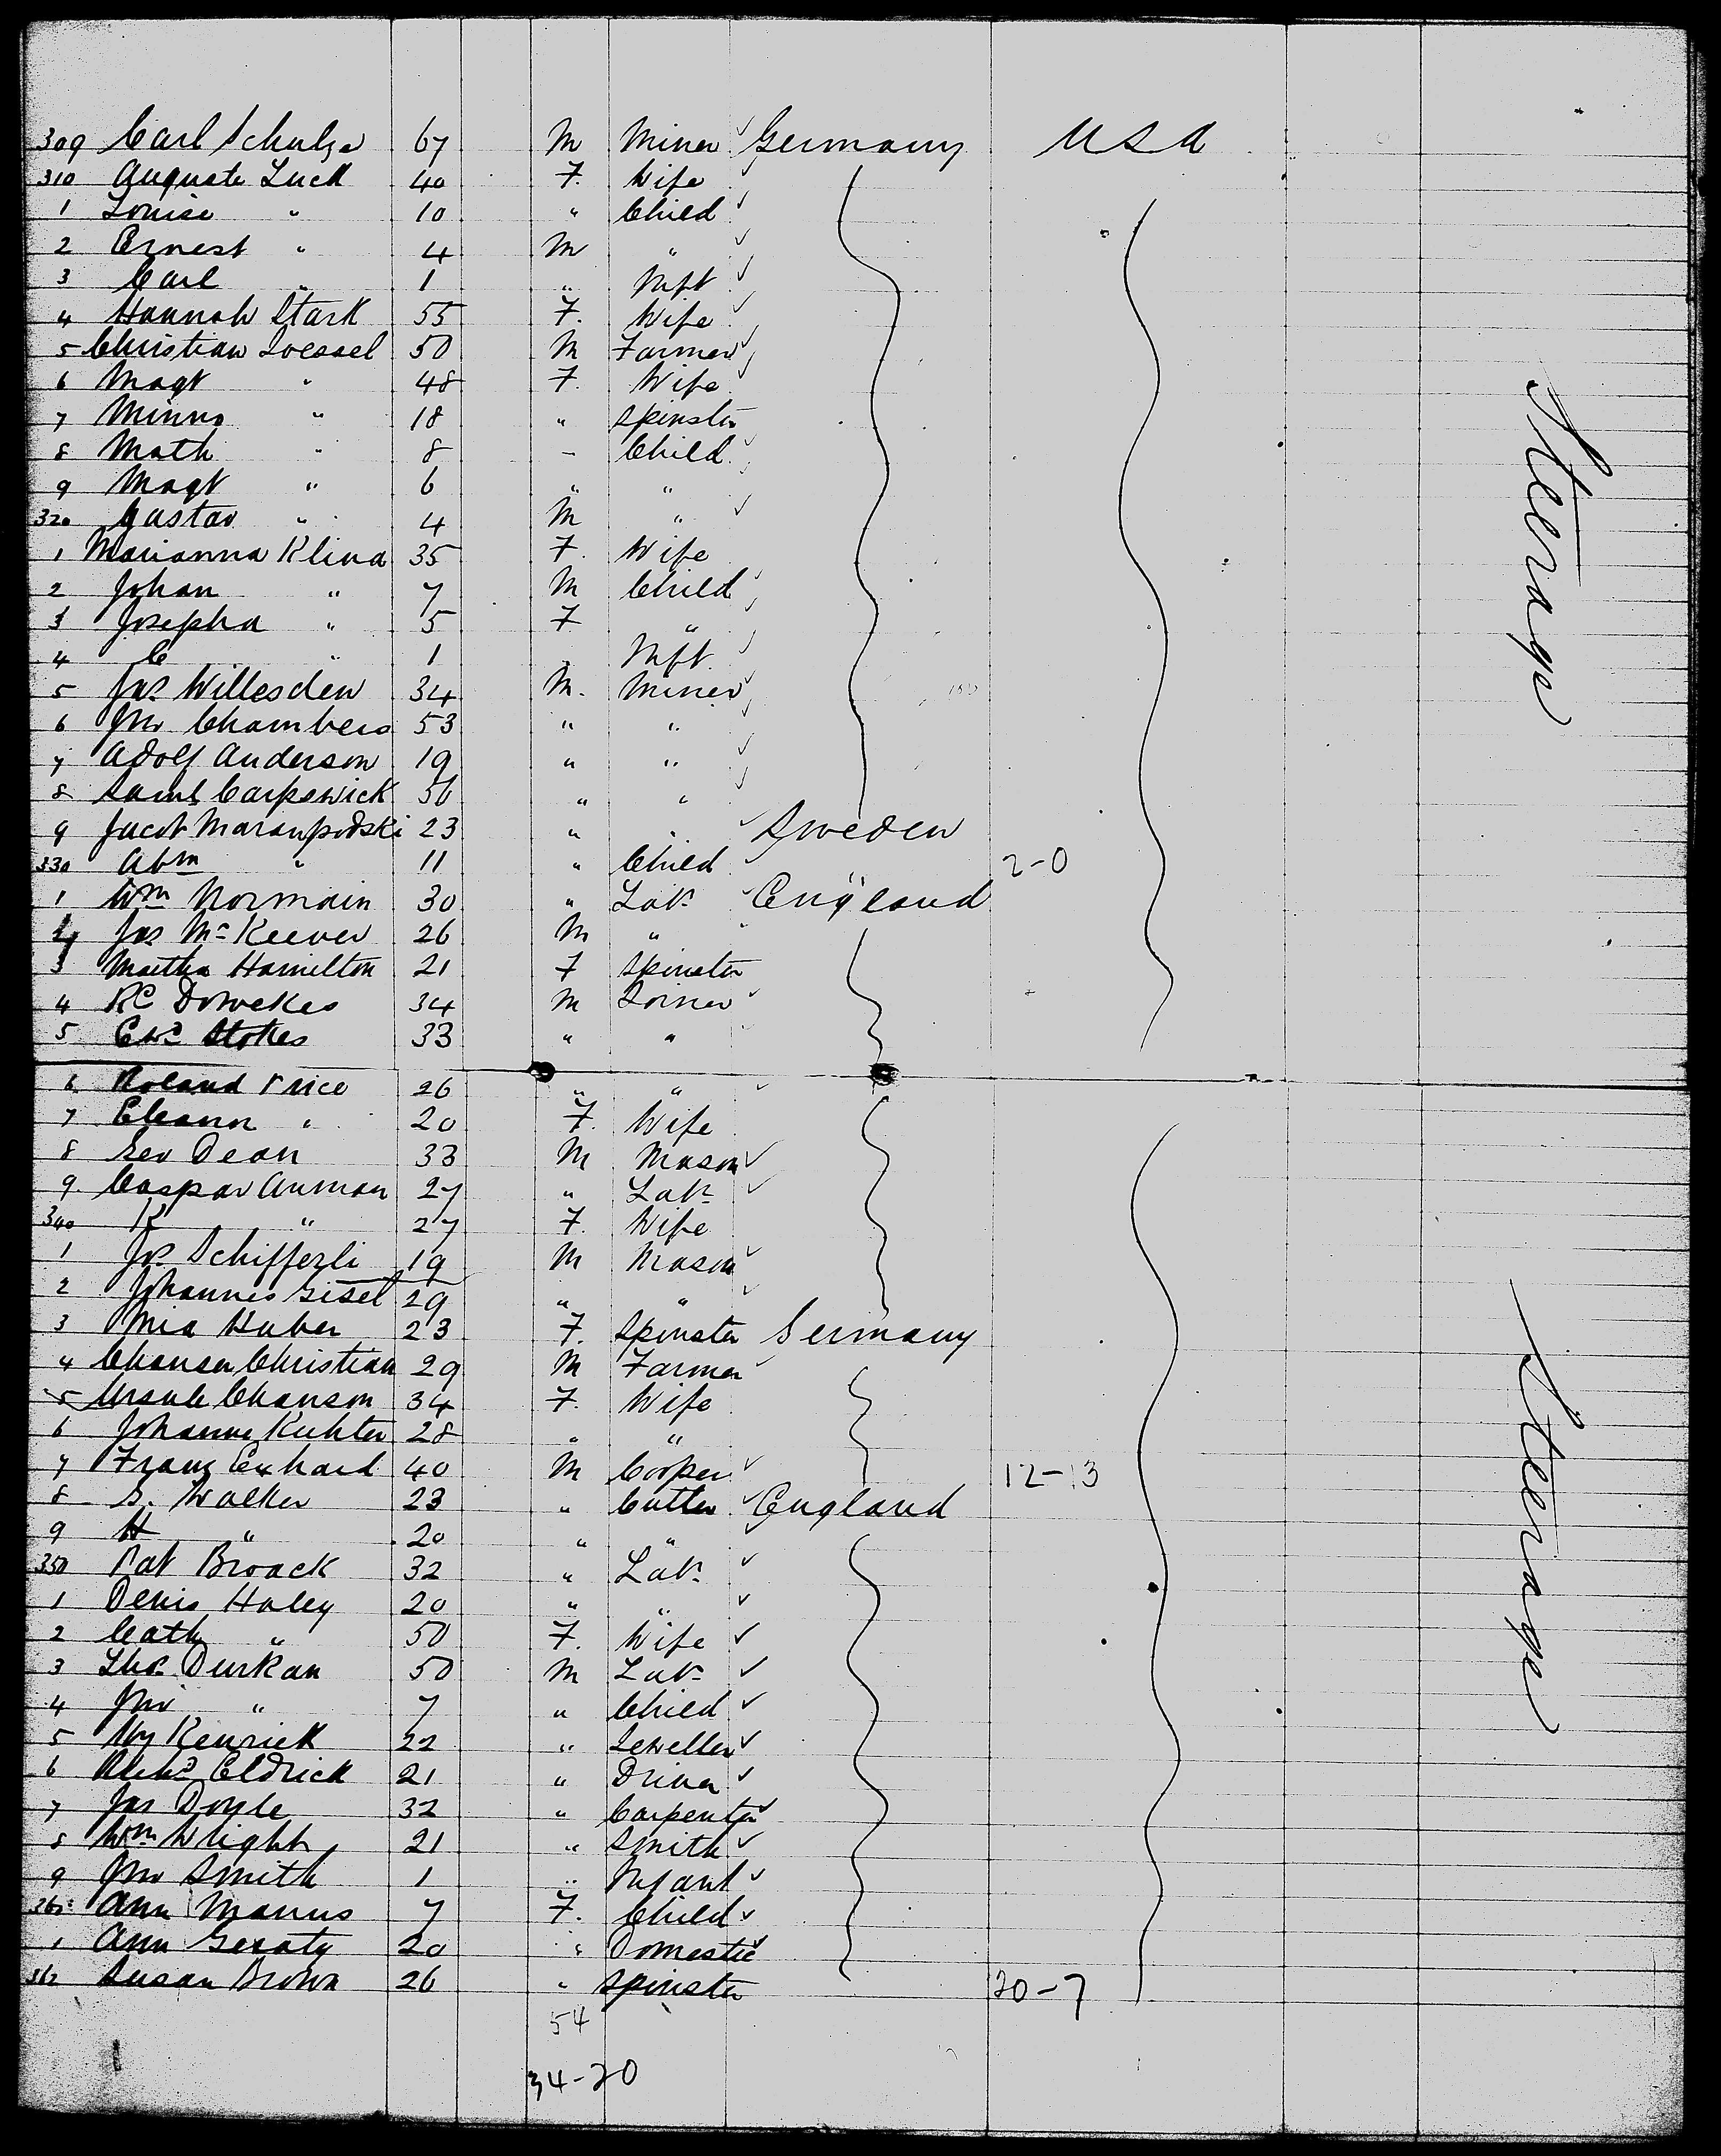 309 Carl Schulze 67 M Miner Germany USA
310 Auguste Luck 40 F. Wife
1 Louise " 10 " Child
2 Ernest " 4 M "
3 Carl " 1 " Inft
4 Hannah Stark 55 F. Wife
5 Christian Loessel 50 M Farmer
6 Magt " 48 F. Wife
7 Minna " 18 " Spinster
8 Math " 8 - Child
9 Magt " 6 " "
320 Gustav " 4 M "
1 Marianna Klina 35 F. Wife
2 Johan " 7 M Child
3 Josepha " 5 F "
4 C " 1 " Inft
5 Jas Willesden 34 M. Miner
6 Jno Chambers 53 " "
7 Adolf Anderson 19 " "
8 Saml Carpswick 50 " "
9 Jacob 23 " " Sweden
330 Abm " 11 " Child 2-0
1 Wm Normain 30 " Labr England
2 Jas McKeever 26 M "
3 Martha Hamilton 21 F Spinster
4 Rd Dowekes 34 M Joiner
5 Ewd Stokes 33 " "
6 Roland Price 26 " "
7 Eleanr " 20 F. Wife
8 Geo Dean 33 M Mason
9. Caspar Auman 27 " Labr
340 " 27 F. Wife
1 Jos Schifferli 19 M Mason
2 Johannes Gisel 29 " "
3 Mia Huber 23 F. Spinster Germany
4 Chansen Christian 29 M Farmer
5 Ursule Chanson 34 F. Wife
6 Johanne Kuhter 28 " "
7 Franz Exhard 40 M Cooper 12-13
8 S. Walker 23 " Cutler England
9 H " 20 " "
350 Pat Broack 32 " Labr
1 Denis Haley 20 " "
2 Cath " 50 F. Wife
3 Thos Durkan 50 M Labr
4 Jno " 7 " Child
5 Hy Kenrick 22 " Jeweller
6 Eldrick 21 " Driver
7 Jas Doyle 32 " Carpenter
8 Wm Wright 21 " Smith
9 Jno Smith 1 " Infant
360 Ann Manus 7 F. Child
1 Ann Geraty 20 " Domestic
362 Susan Brown 26 " Spinster 20-7
54
34-20
Steerage
Steerage